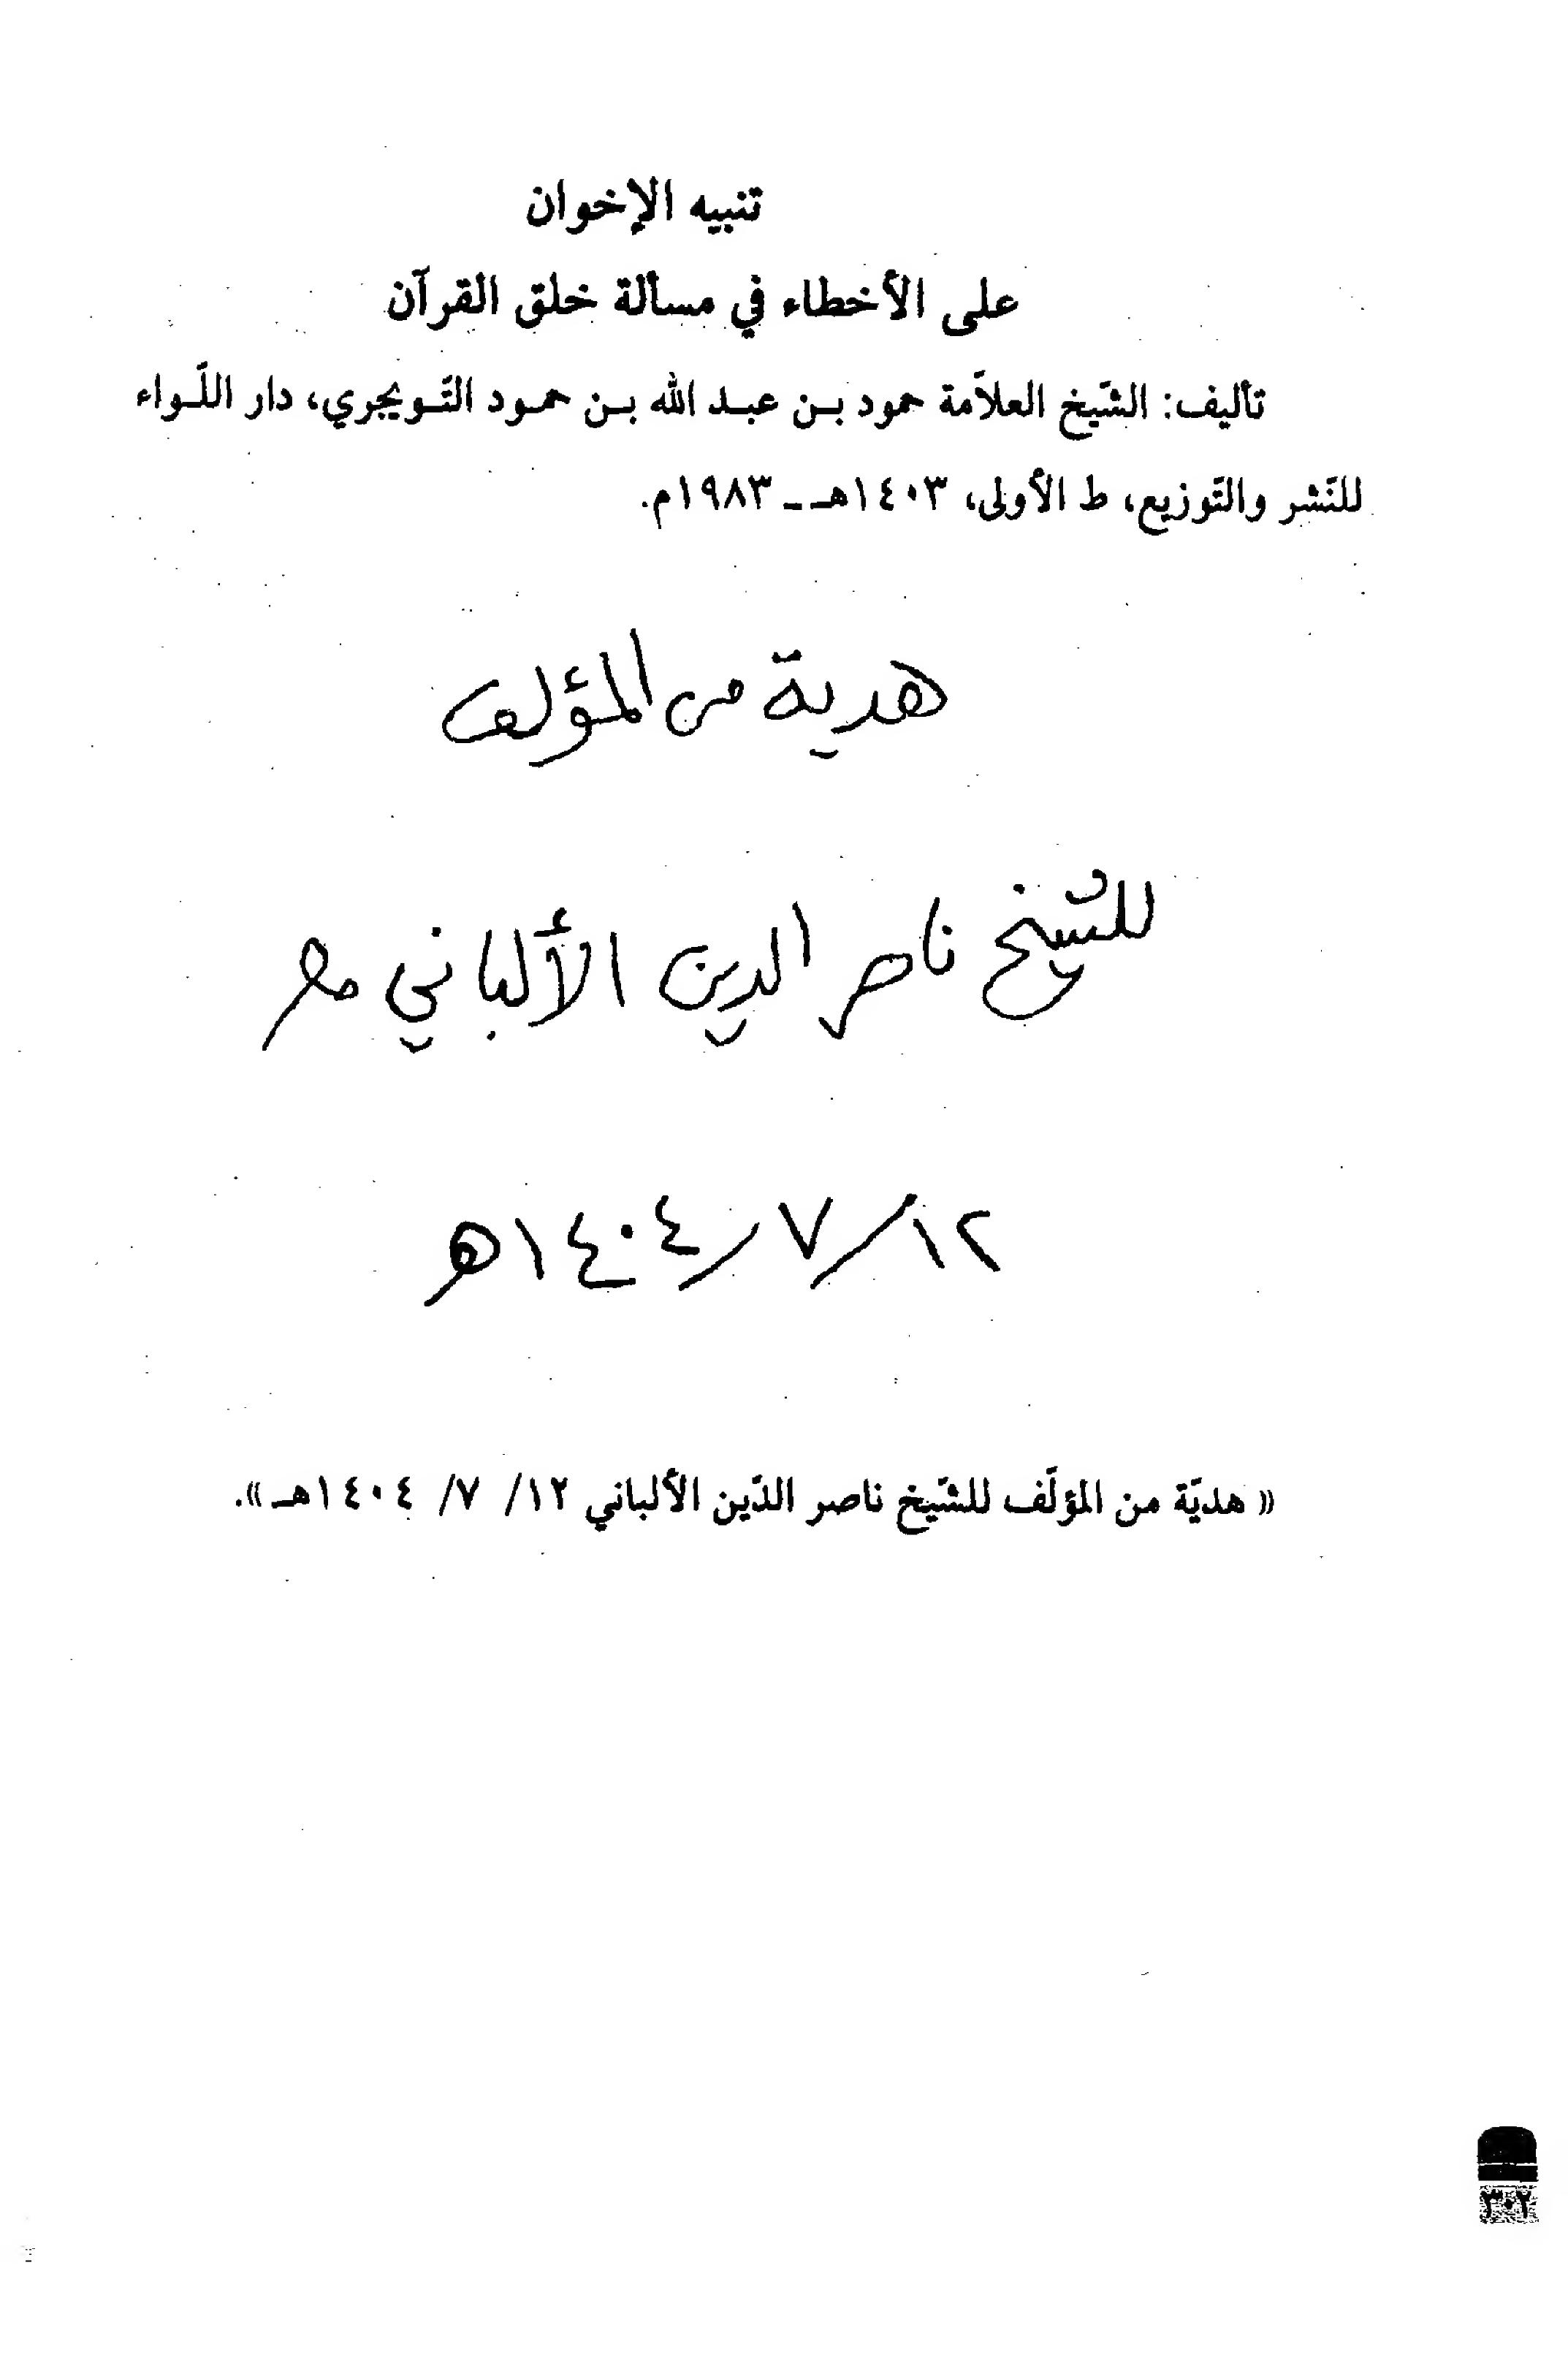 تنبيه الإخوان
على الأخطاء في مسألة خلق القرآن
تأليف: الشّيخ العلاّمة حمود بـن عبـد الله بـن حمـود التّـويجري، دار اللّـواء
للنّشر والتّوزيع، ط الأولى، ١٤٠٣هـ ـ ١٩٨٣م.
هدية من المؤلف
للشّيخ ناصر الدين الألباني
١٢/٧/١٤٠٤ه
« هديّة من المؤلّف للشّيخ ناصر الدّين الألباني ١٢/ ٧/ ١٤٠٤هـ».
٣٠٢